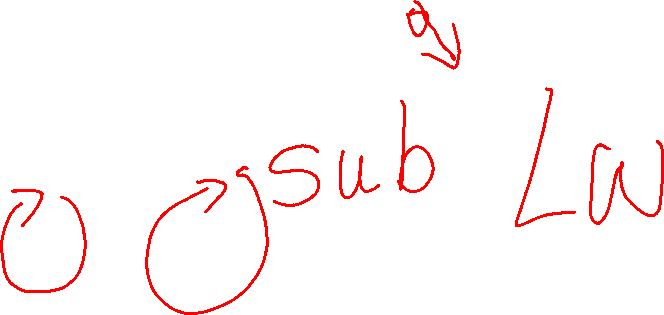 sub Lw